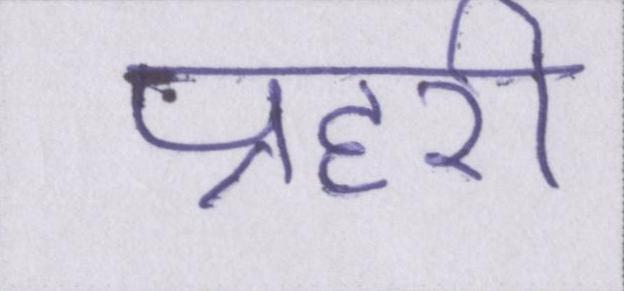 प्रहरी